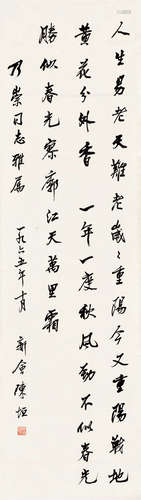 人生易老天難老歲々重陽今又重陽戰地
黃花分外香 一年一度秋風勁不似春光
勝似春光寥廓江天萬里霜
乃崇同志雅屬 一九六五年十月 新會陳垣